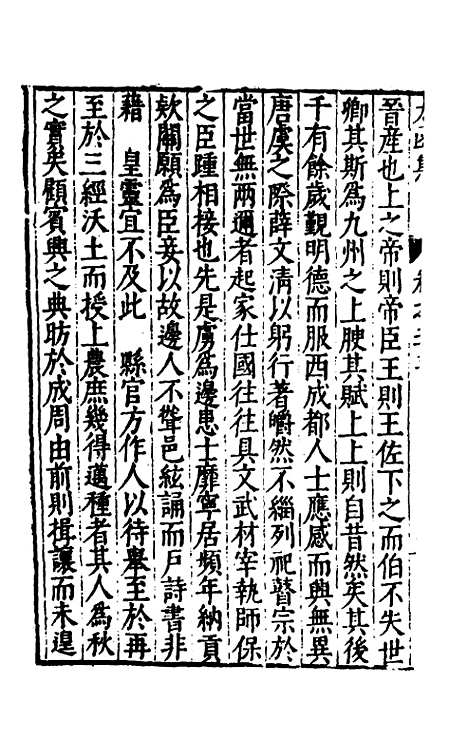 晉産也上之帝則帝臣王則王佐下之而伯不失世
卿其斯為九州之上腴其賦上上則自昔然矣其後
千有餘歲覲明德而服西成都人士應感而興無異
唐虞之際薛文清以躬行著皭然不緇列祀瞽宗於
當世無兩邇者起家仕國往往具文武材宰執師保
之臣踵相接也先是虜為邊患士靡寧居頻年納貢
欵關願為臣妾以故邊人不聳邑絃誦而戶詩書非
藉 皇靈宜不及此 縣官方作人以待舉至於再
至於三經沃土而授上農庶幾得邁種者其人為秋
之實矣顧賓興之典昉於成周由前則揖讓而未遑